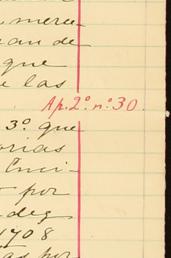 meru-
ean de
que
e las
Ap. 2º nº 30.
3º que
orias
Enci-
por
dez
1708
as por